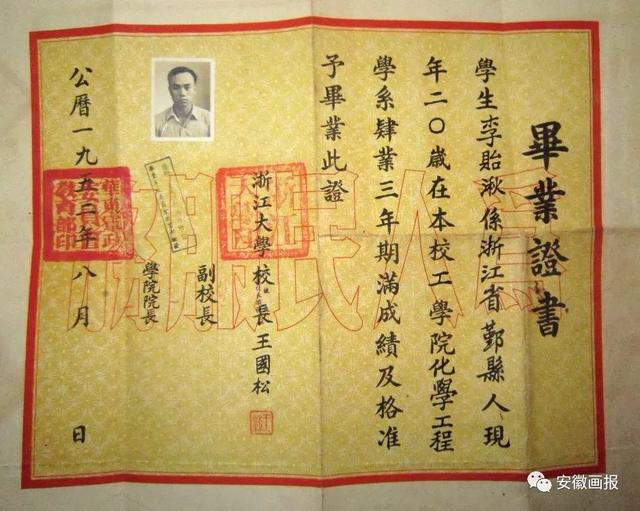 畢業證書
學生李貽湫係浙江省鄞縣人現
年二〇歲在本校工學院化學工程
學系肄業三年期滿成績及格准
予畢業此證
浙江大學校長王國松
副校長
學院院長
公曆一九五二年八月 日
為人民服務
安徽画报